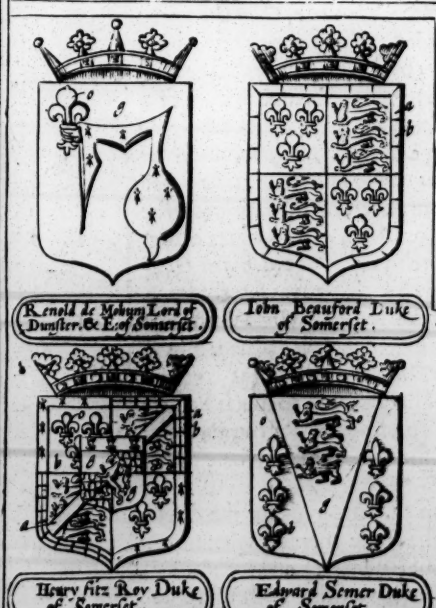 o g
a
b
Renold de Mohun Lord of
Dunster. & E: of Somerset.
Iohn Beauford Duke
of Somerset.
b
o a
b
b g
g
a
o o
g
Henry fitz Roy Duke
of Somerset
Edward Semer Duke
of Somerset